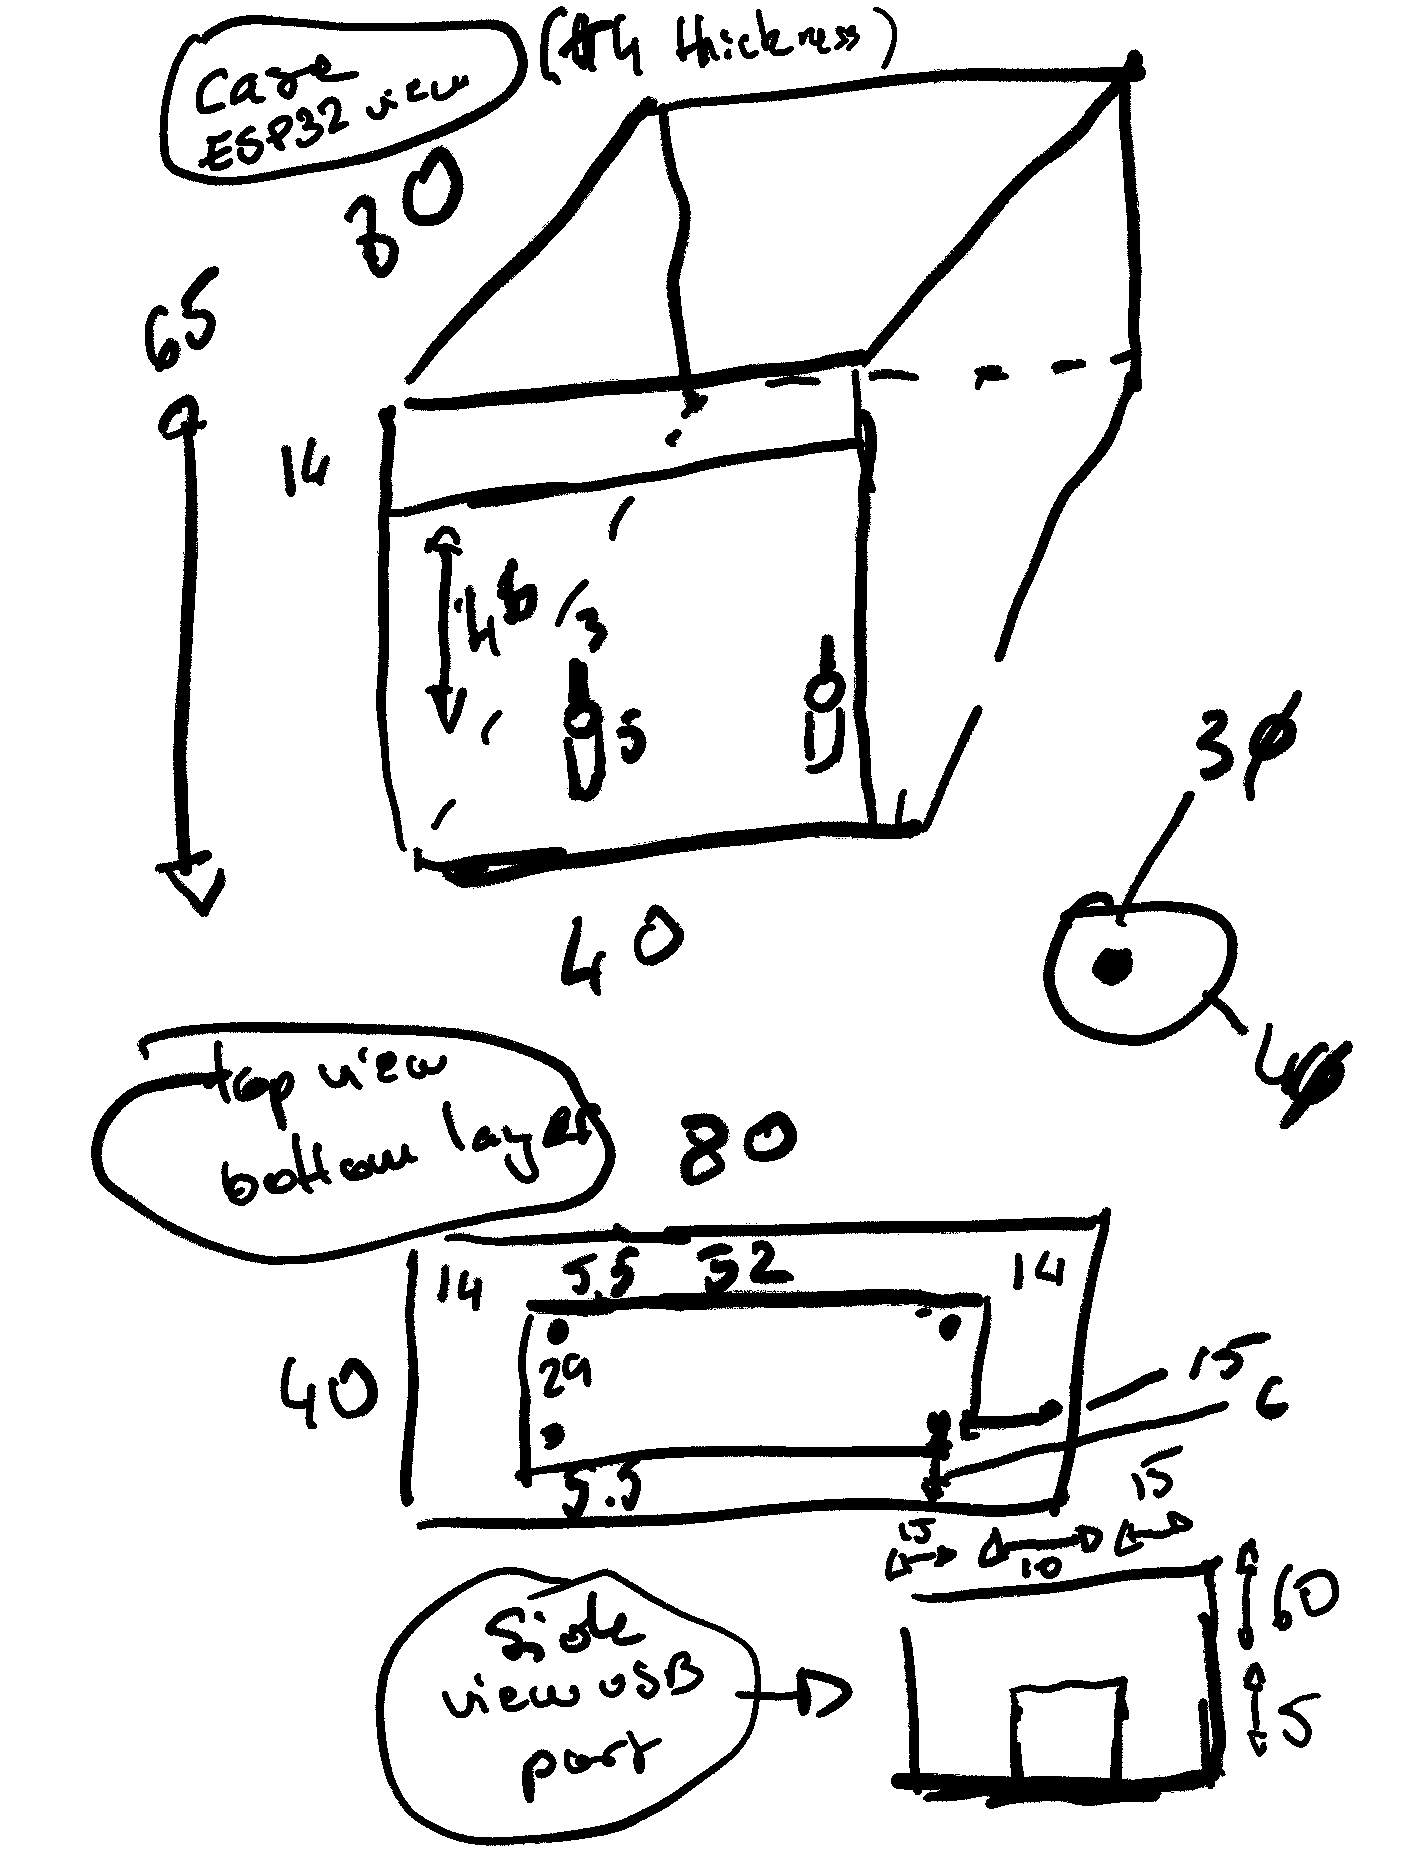 Case
ESP32 view
(#4 thickness)
80
65
14
48
3
5
40
3Ø
4Ø
top view
bottom layer
80
14
5.5
52
14
40
29
15
6
5.5
15
15
10
60
5
Side
view USB
part